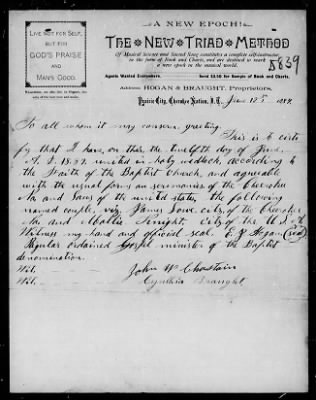 A NEW EPOCH!
LIVE NOT FOR SELF,
BUT FOR
GOD'S PRAISE
AND
MAN'S GOOD.
THE NEW TRIAD METHOD
Of Musical Science and Sacred Song constitutes a complete self-instructor,
in the form of Book and Charts, and are destined to mark
a new epoch in the musical world.
Agents Wanted Everywhere. Send $2.50 for Sample of Book and Charts.
5839
Address HOGAN & BRAUGHT, Proprietors,
Prairie City, Cherokee Nation, I.T., June 12th 1889.
To all whom it may concern, greeting.
This is to certi
fy that I have, on this, the twelfth day of June,
A. D. 1889, united in holy wedlock, according to
the Faith of the Baptist church, and agreeable
with the usual forms an ceremonies of the Cherokee
Na. and Laws of the united states, the following
named couple, viz. James city, of the Cherokee
Na. and Mollie Knight, city of the U.S.
Witness my hand and official seal. E. Hogan (seal)
Regular ordained Gospel minister of the Baptist
denomination.
Wit. John W.
Wit. Cynthia Braught